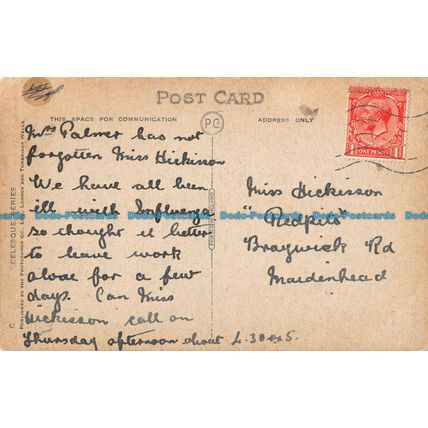 POST CARD
THIS SPACE FOR COMMUNICATION
ADDRESS ONLY
PC
C.
CELESQUE SERIES
PUBLISHED BY THE PHOTOCHROM CO. LTD. LONDON AND TUNBRIDGE WELLS
Mrs Palmer has not
forgotten Miss Hickisson
We have all been
ill with Influenza
so thought it better
to leave work
alone for a few
days. Can Miss
Hickisson call on
Thursday afternoon about 4.30 or 5.
Miss Hickisson
"Redpits"
Braywick Rd
Maidenhead
1 ONE PENNY 1
Dodo-Postcards Dodo-Postcards Dodo-Postcards Dodo-Postcards